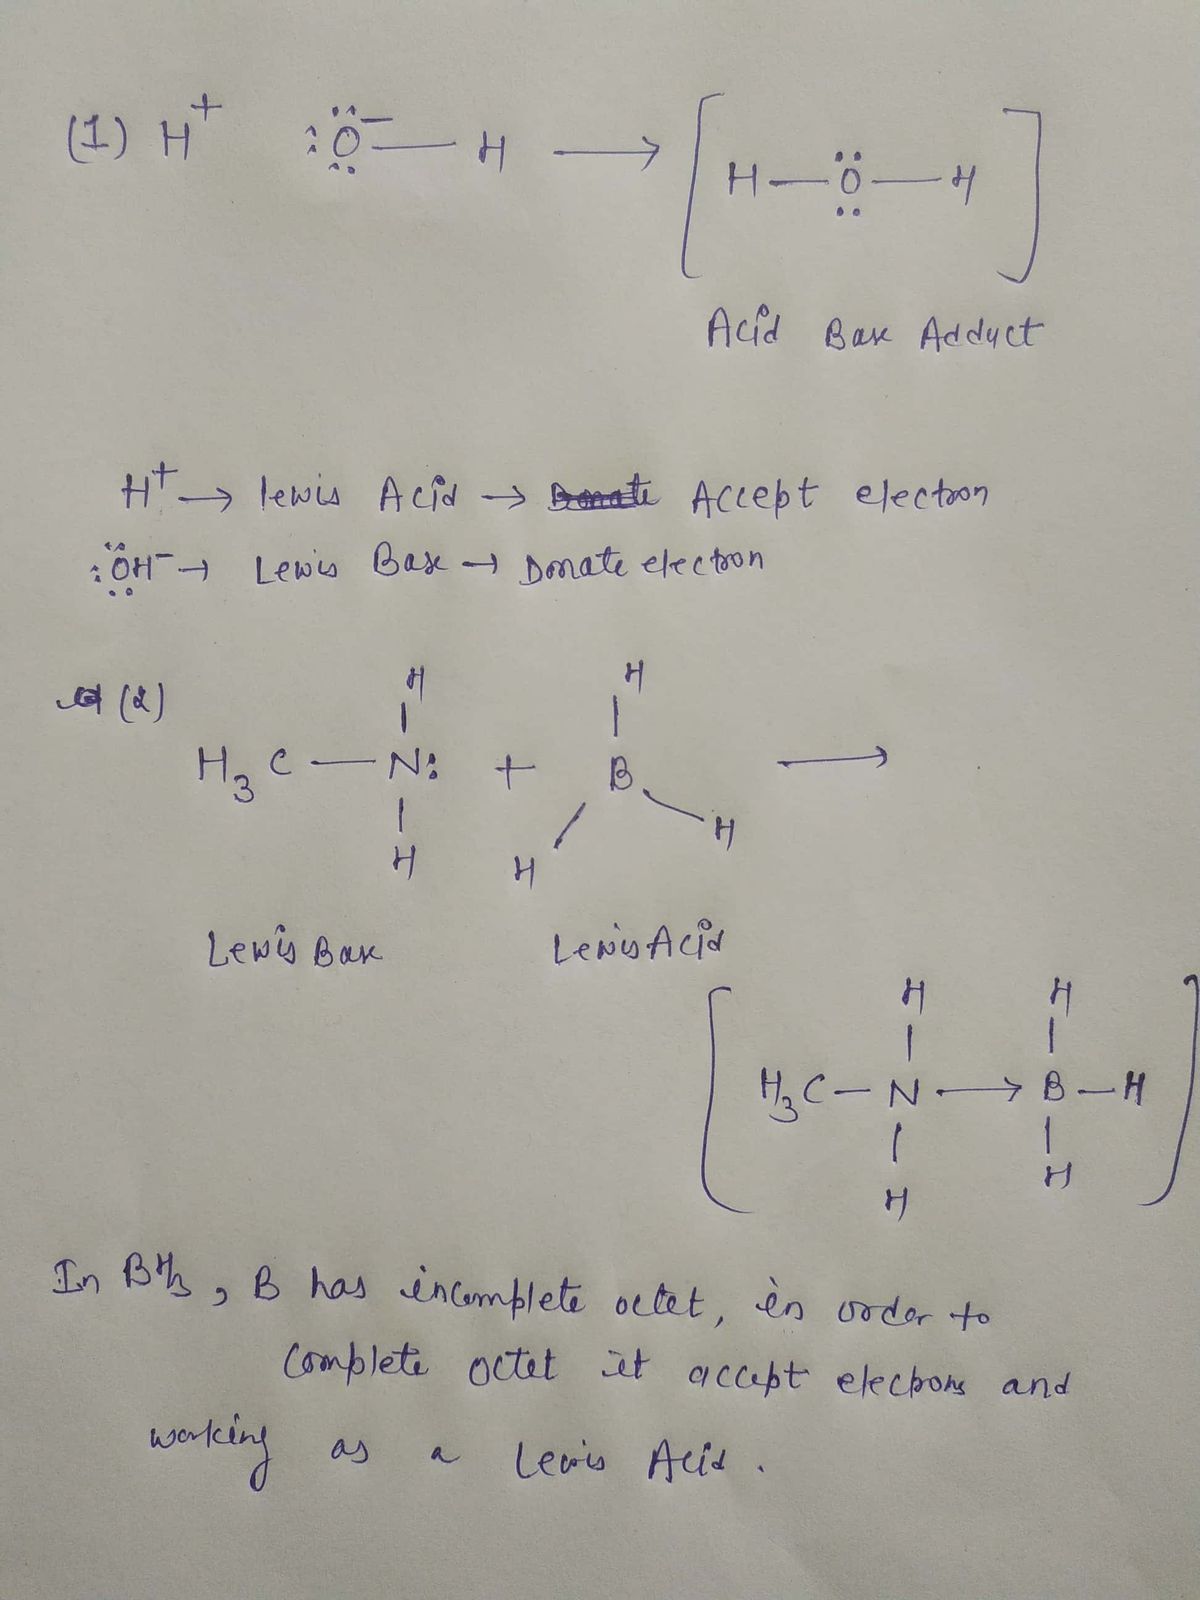 (1) H⁺ :Ö⁻—H → [H—Ö—H]
Acid Base Adduct
H⁺ → lewis Acid → Accept electron
:ÖH⁻ → Lewis Base → Donate electron
(2)
H H
H₃C—N: + B →
H H H
Lewis Base Lewis Acid
H H
[H₃C—N→B—H]
H H
In BH₃, B has incomplete octet, in order to
complete octet it accept electrons and
working as a Lewis Acid.